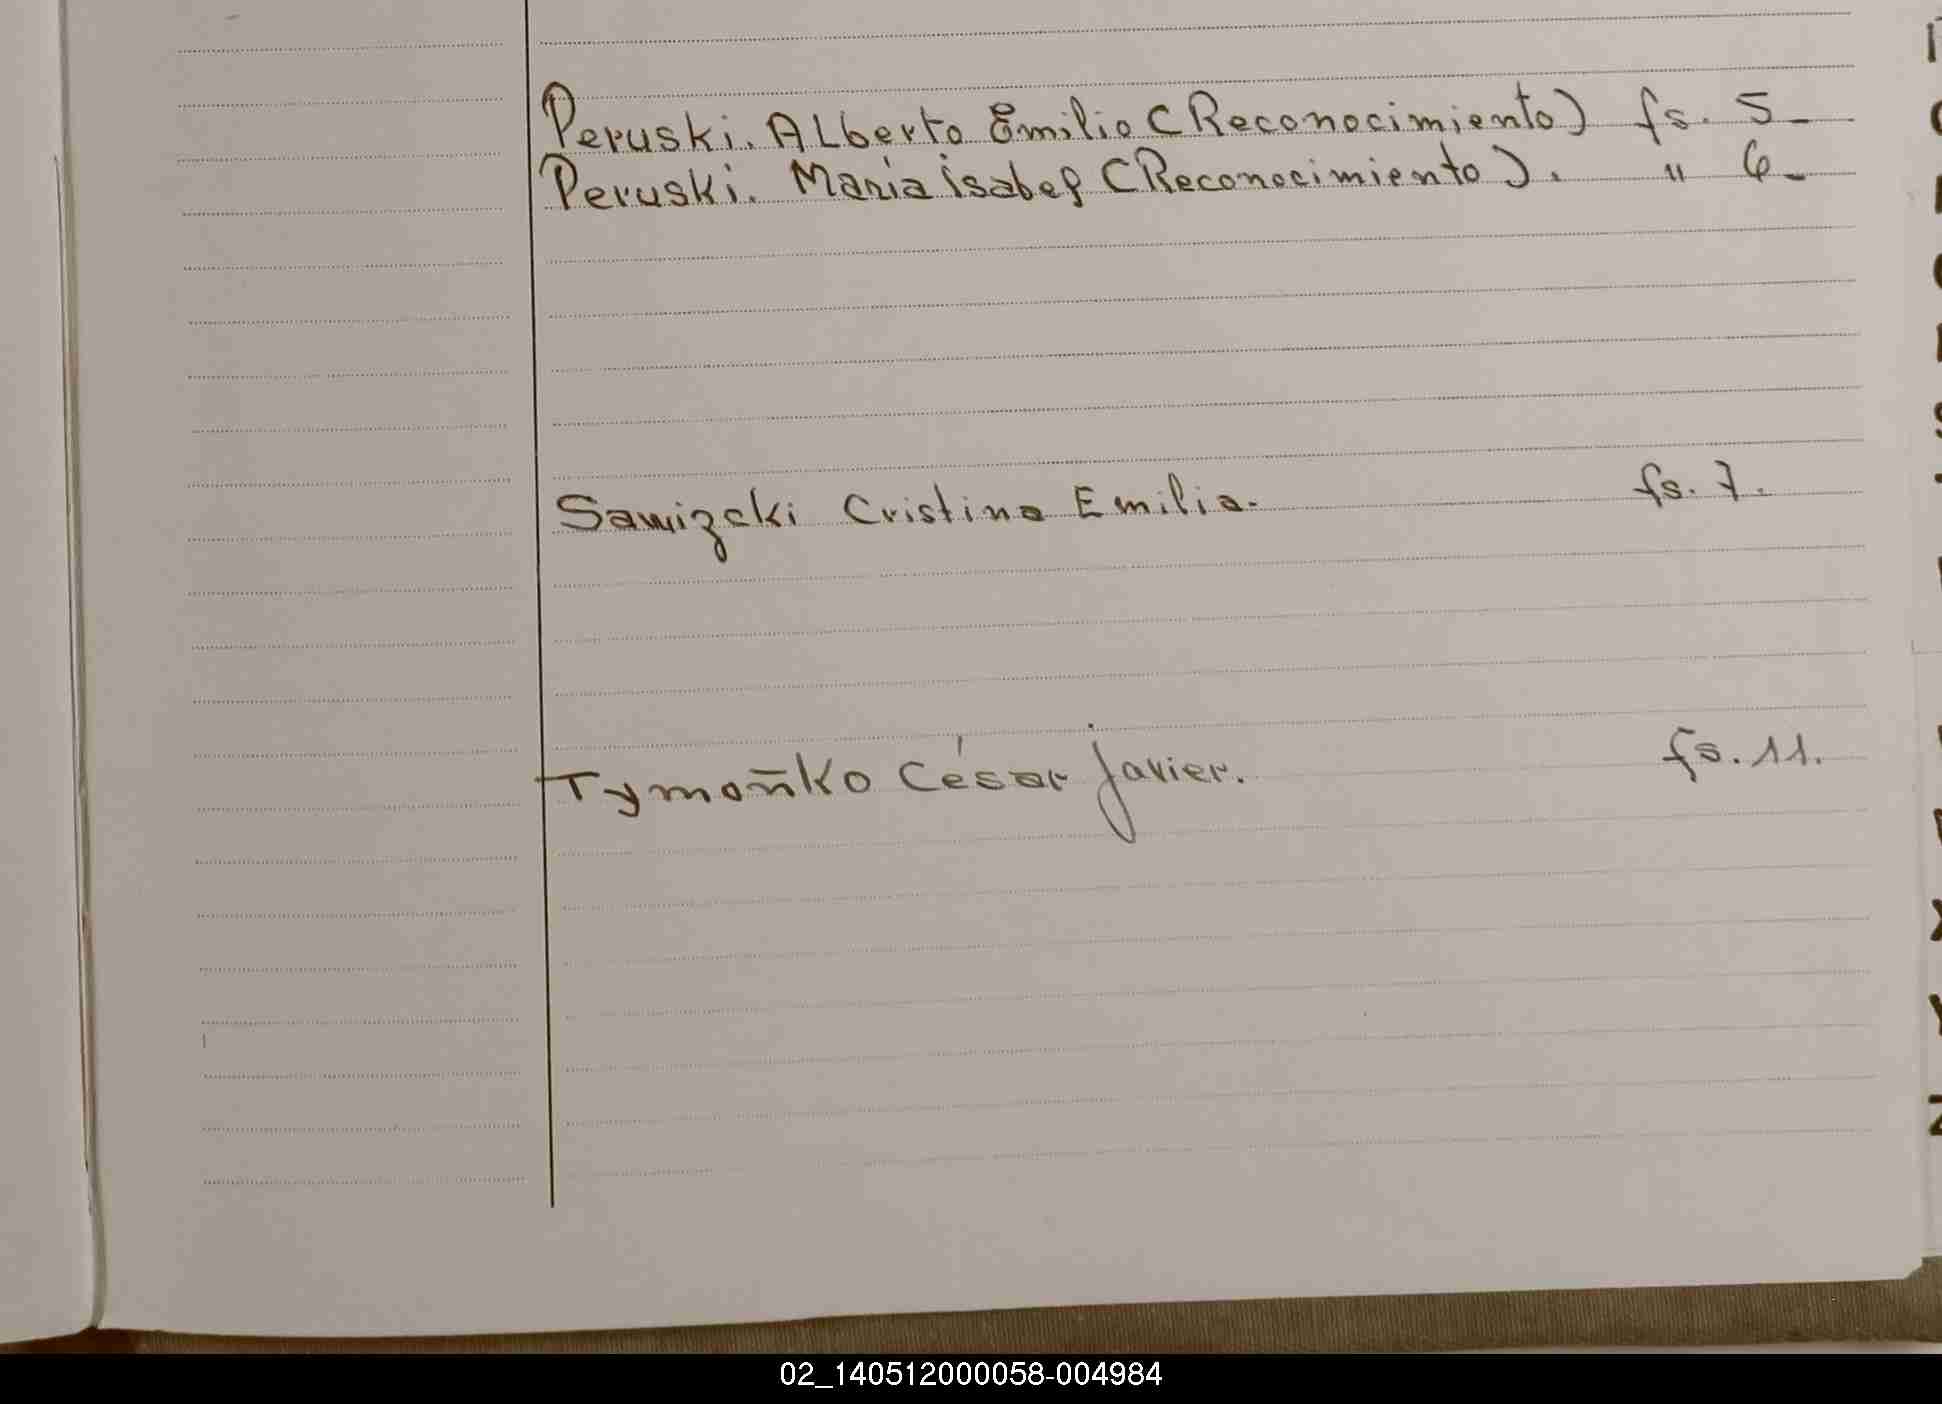 Peruski. ALberto Emilio (Reconocimiento) fs. 5_
Peruski. María isabel (Reconocimiento). " 6_
Sawizcki Cristina Emilia. fs. 7.
Tymoñko César javier. fs. 11.
02_140512000058-004984